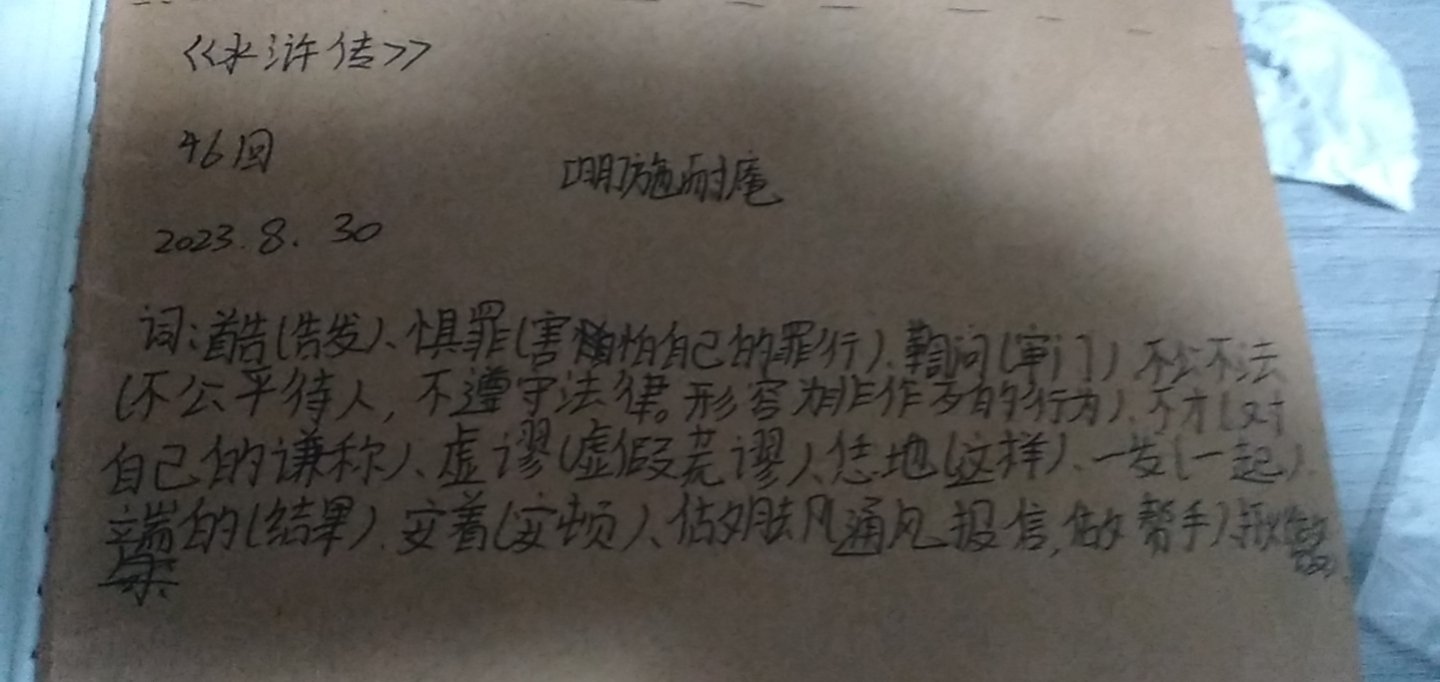 《水浒传》
46回
[明]施耐庵
2023.8.30
词:首告(告发)、惧罪(害怕自己的罪行)、鞫问(审问)、不公不法
(不公平待人,不遵守法律。形容为非作歹的行为)、不才(对
自己的谦称)、虚谬(虚假荒谬)、恁地(这样)、一发(一起)、
端的(结果)、安着(安顿)、做脚(通风报信,做帮手)、